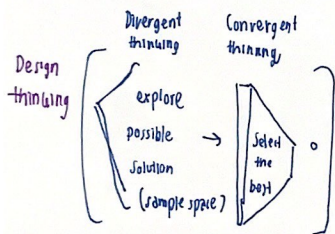 Design
thinking
Divergent
thinking
explore
possible
solution
(sample space)
Convergent
thinking
Select
the
best